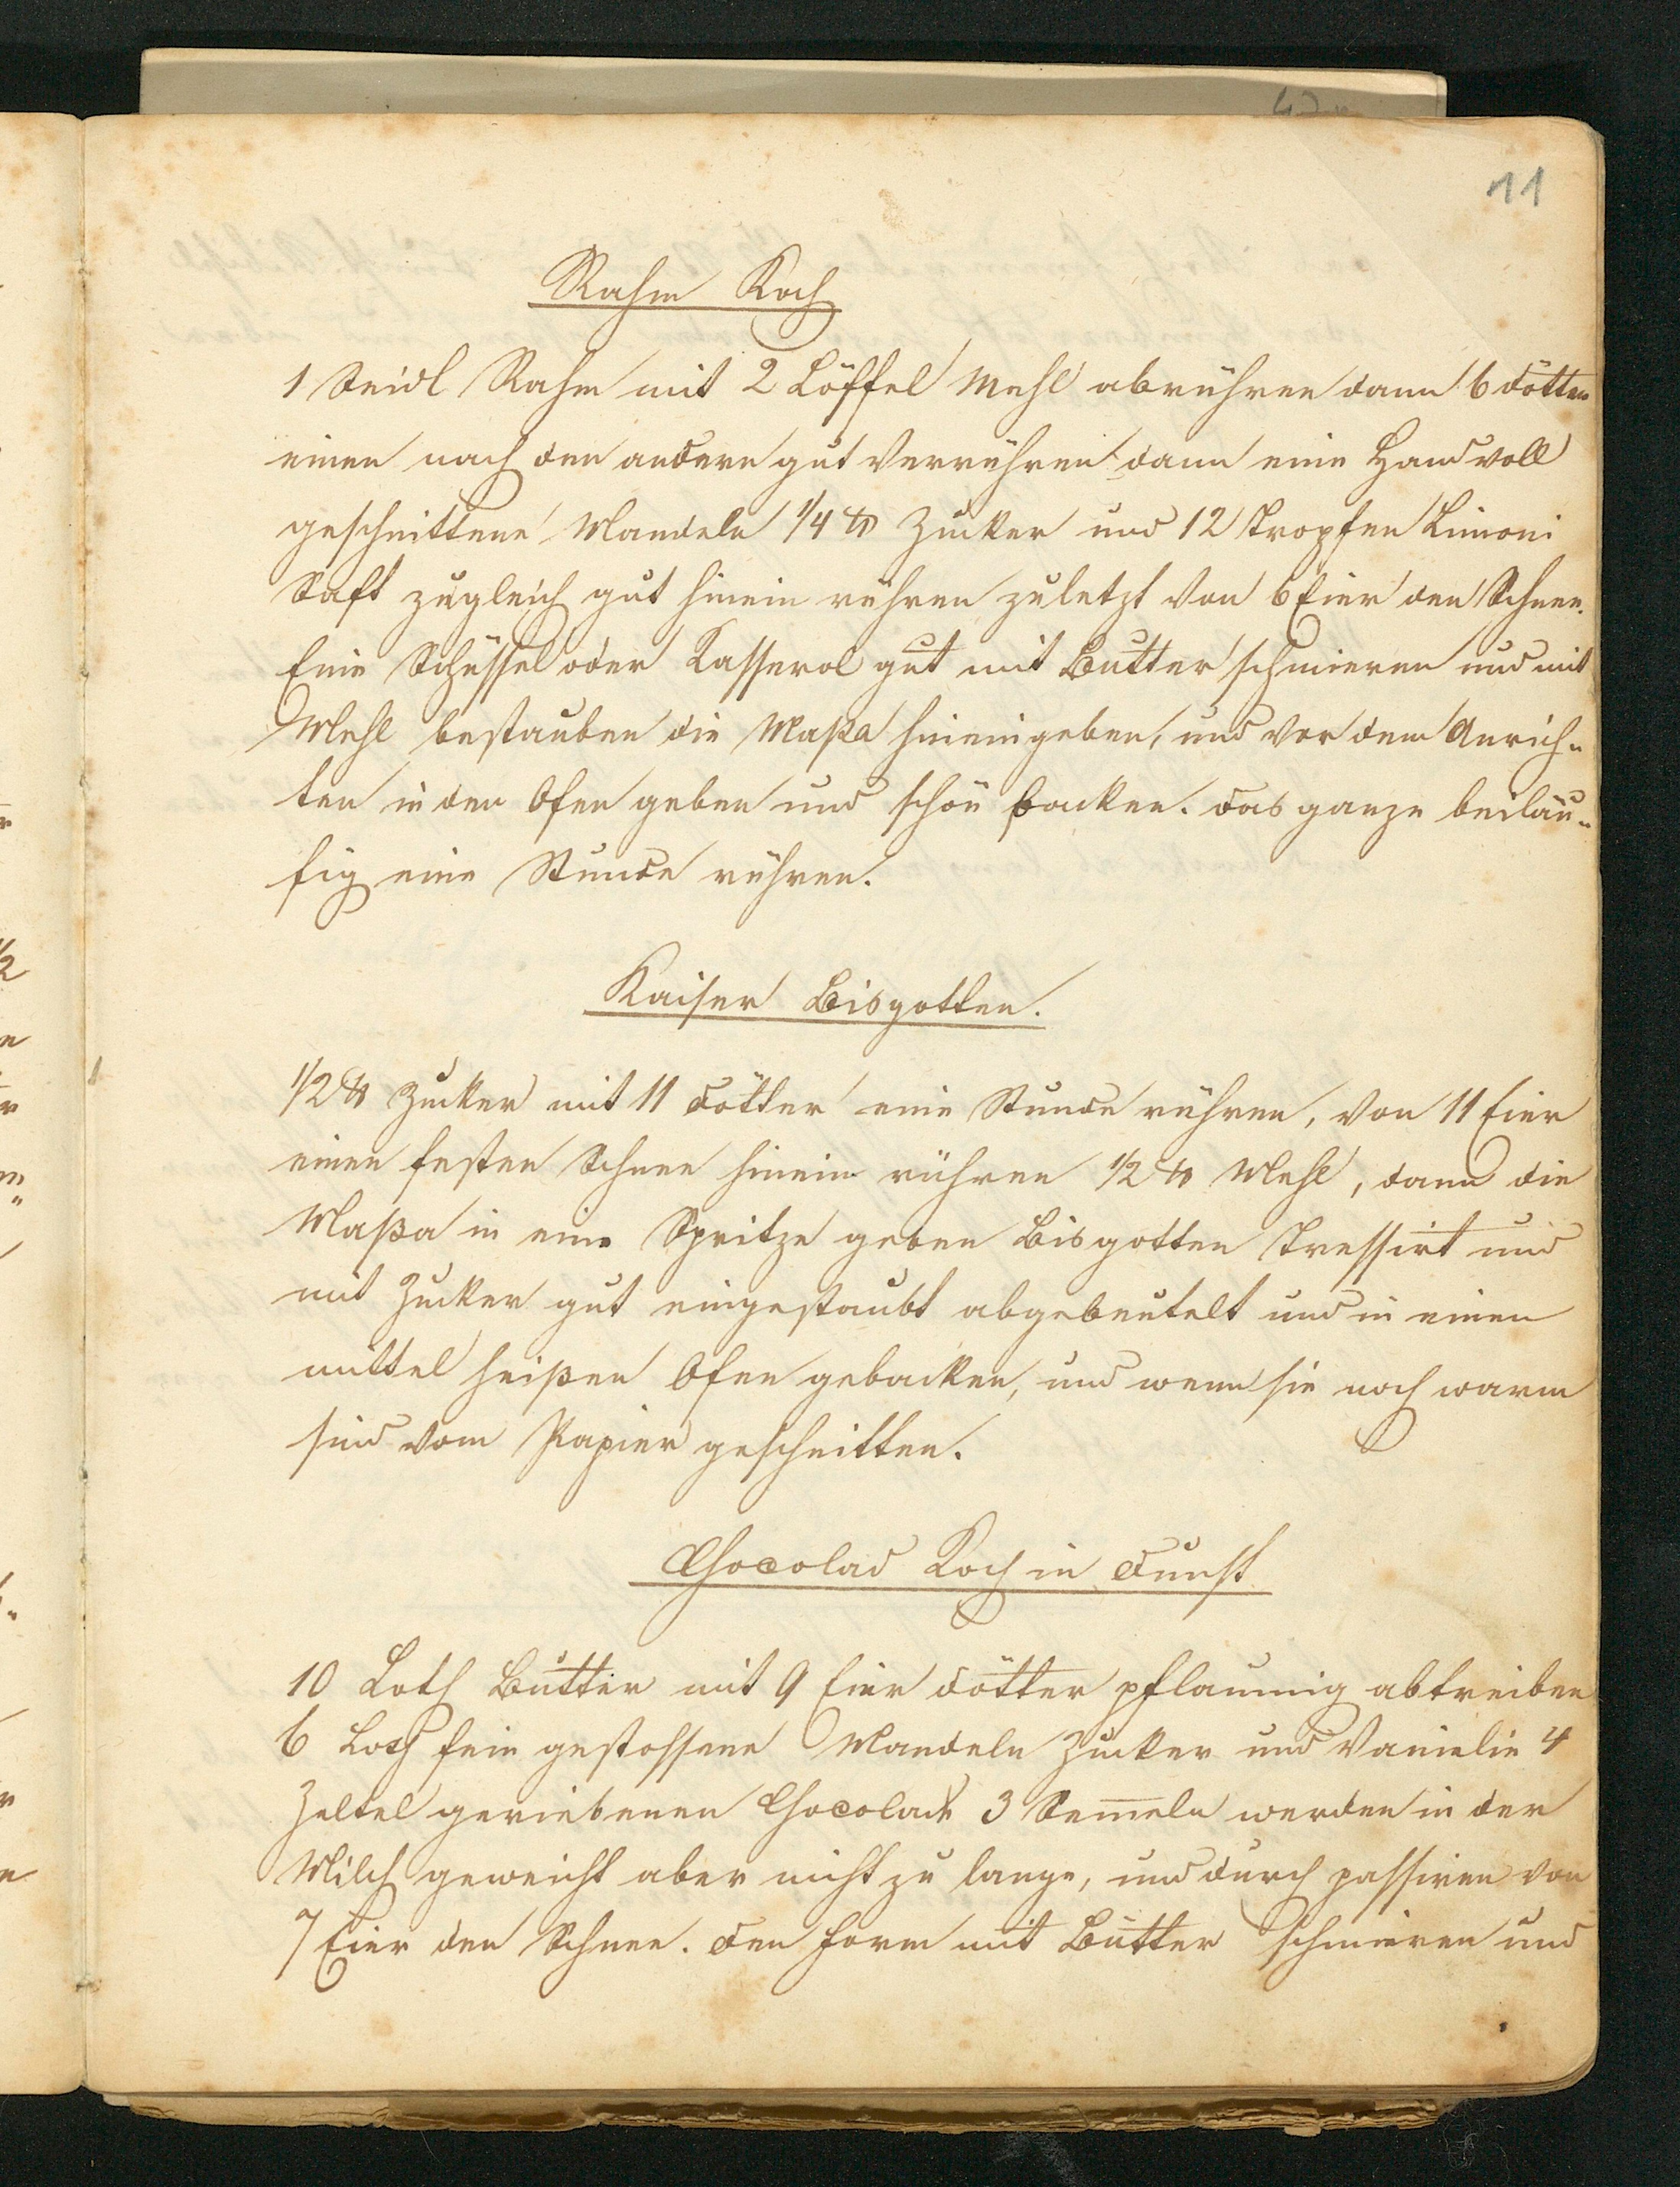 11
Rahm Koch
1 Seidl Rahm mit 2 Löffel Mehl abrühren dann 6 Dötter
einen nach den andern gut verrühren dann eine Handvoll
geschnittene Mandeln 1/4 ℔ Zucker und 12 Tropfen Limoni
Saft zugleich gut hinein rühren zuletzt von 6 Eier den Schnee.
Eine Schüssel oder Kasserol gut mit Butter schmieren und mit
Mehl bestauben die Maßa hineingeben, und vor dem Anrich-
ten in den Ofen geben und schön backen. Das ganze beiläu-
fig eine Stunde rühren.
Kaiser Bisgotten.
1/2 ℔ Zucker mit 11 Dötter eine Stunde rühren, von 11 Eier
einen festen Schnee hinein rühren 1/2 ℔ Mehl, dann die
Maßa in eine Spritze geben Bisgotten Tressirt und
mit Zucker gut eingestaubt abgebeutelt und in einen
mittel heißen Ofen gebacken, und wenn sie noch warm
sind vom Papier geschnitten.
Chocolad Koch in Dunst
10 Loth Butter mit 9 Eier Dötter pflaumig abtreiben
6 Loth fein gestossene Mandeln Zucker und Vanielie 4
Zeltel geriebenen Chocolade 3 Sem̅eln werden in der
Milch geweicht aber nicht zu lange, und durch passiren von
7 Eier den Schnee. Den Form mit Butter schmieren und